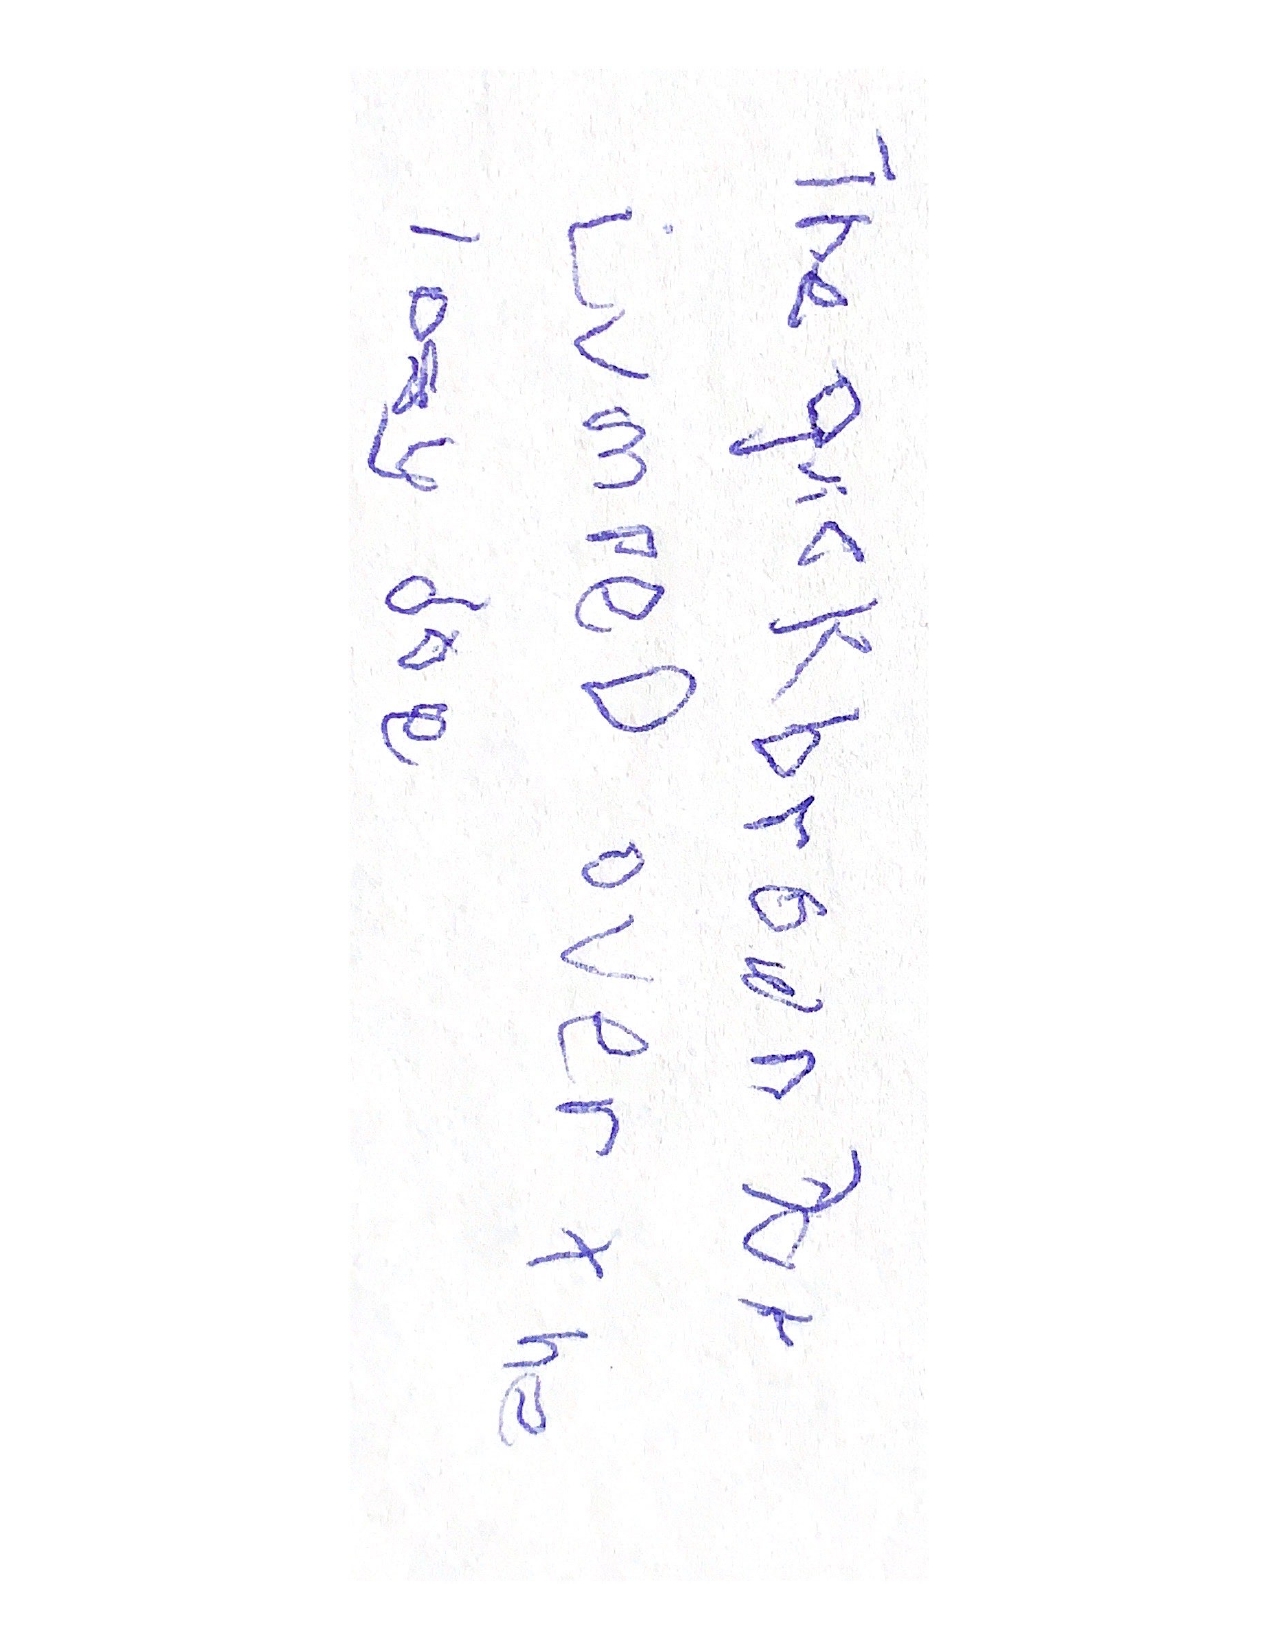 The quick brown for
jumpeD over the
lazy doe